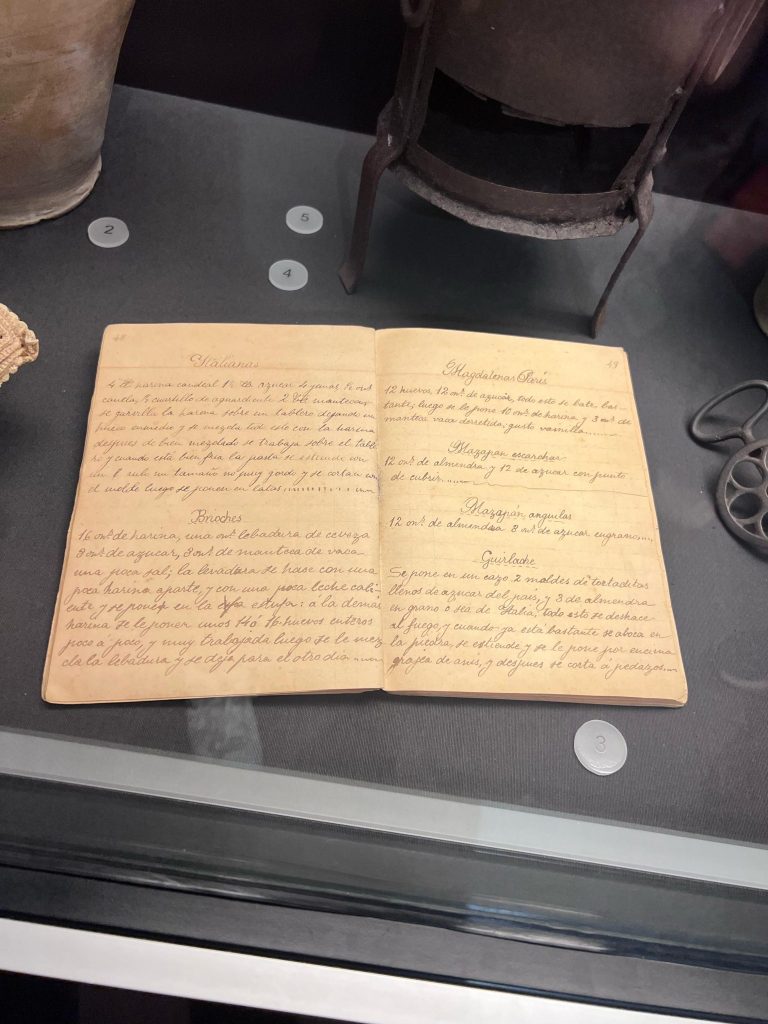 2
5
4
48
Italianas
4 lb harina candeal 1½ lb azucar 4 yemas, ½ onz
canela, ½ cuartillo de aguardiente 2 lb mantecas
se garvilla la harina sobre un tablero dejando un
hueco enmedio y se mezcla todo esto con la harina
despues de bien mezclado se trabaja sobre el table
ro y cuando está bien fria la pasta se estiende con
un rulo un tamaño no muy gordo y se cortan con
el molde luego se ponen en latas
Brioches
16 onz. de harina, una onz. lebadura de cerveza
8 onz. de azucar, 8 onz. de manteca de vaca
una poca sal; la levadura se hase con una
poca harina aparte, y con una poca leche cali
ente y se pone en la estufa: á la demas
harina se le ponen unos 14 ó 16 huevos enteros
poco á poco, y muy trabajada luego se le mez
cla la lebadura y se deja para el otro dia
49
Magdalenas Paris
12 huevos, 12 onz. de azucar, todo esto se bate bas-
tante, luego se le pone 10 onz. de harina y 3 onz. de
manteca vaca derretida, gusto vainilla
Mazapan escarchar
12 onz. de almendra y 12 de azucar con punto
de cubrir
Mazapán anguilas
12 onz. de almendra 8 onz. de azucar en grano
Guirlache
Se pone en un cazo 2 moldes de tortaditas
llenos de azucar del pais, y 3 de almendra
en grano ó sea de Italia, todo esto se deshace
al fuego, y cuando ya está bastante se aboca en
la piedra, se estiende y se le pone por encima
grajea de anis, y despues se corta á pedazos
3